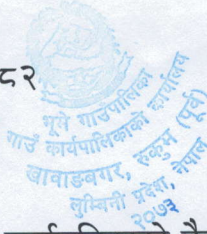 ८२
भूमे गाउँपालिका
गाउँ कार्यपालिकाको कार्यालय
खावाङबगर, रुकुम (पूर्व)
लुम्बिनी प्रदेश, नेपाल
२०७३